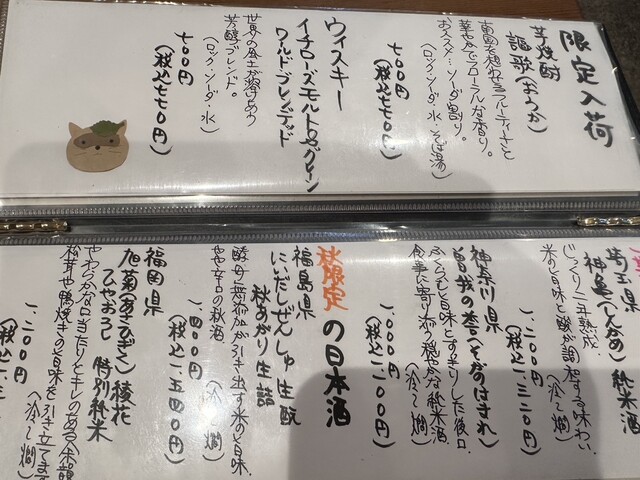 限定入荷
芋焼酎
謳歌(おうか)
南国を想わせるフルーティさと
華やかでフローラルな香り。
おススメ…ソーダ割り。
(ロック・ソーダ・水・そば湯)
七〇〇円
(税込七七〇円)
ウィスキー
イチローズモルト&グレーン
ワールドブレンデッド
世界の風土が溶けあう
芳醇ブレンド。
(ロック・ソーダ・水)
七〇〇円
(税込七七〇円)
埼玉県
神亀(しんかめ) 純米酒
じっくり二年熟成。
米の旨味と酸が調和する味わい。
(冷〜燗)
一、二〇〇円
(税込一、三二〇円)
神奈川県
曽我の誉(そがのほまれ)
ふくらむ旨味とすっきりした後口。
食事に寄り添う穏やかな純米酒
(冷〜燗)
一、〇〇〇円
(税込一、一〇〇円)
秋限定の日本酒
福島県
にいだしぜんしゅ 生酛
秋あがり生詰
酵母無添加が引き出す米の旨味。
やや辛口の秋酒
(冷〜燗)
一、四〇〇円
(税込一、五四〇円)
福岡県
旭菊(あさひぎく) 綾花
ひやおろし 特別純米
やわらかな口当たりとキレのある余韻
松茸や鴨焼きの旨味を引き立てます
(冷〜燗)
一、二〇〇円
(税込一、三